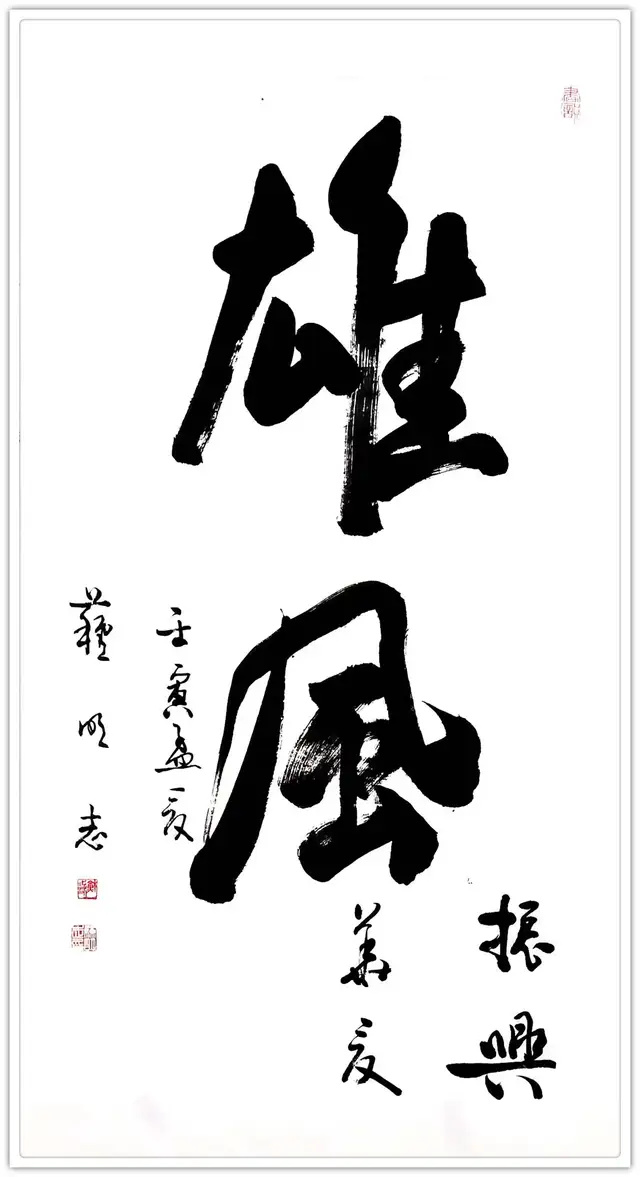 雄風
振興
華夏
壬寅孟夏
蘇明志